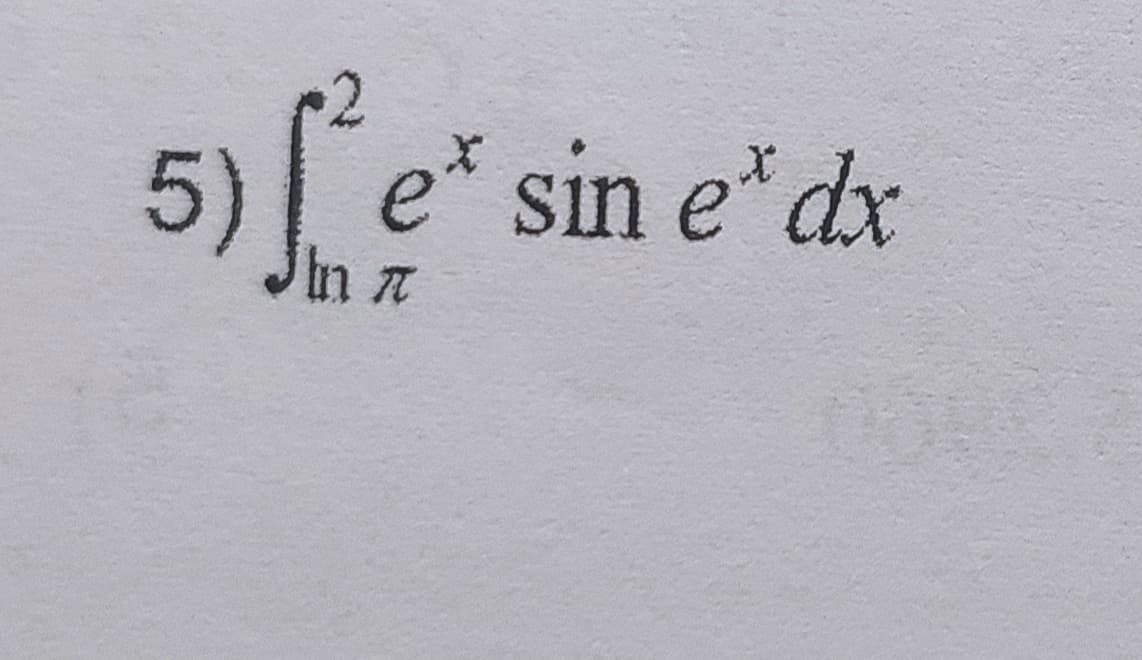 5) ∫_{ln π}^{2} e^x sin e^x dx